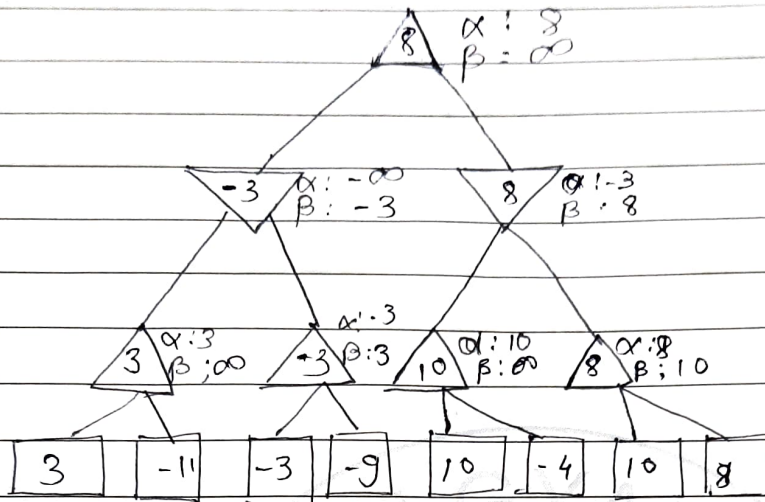 8 α: 8
β = ∞
-3 α: -∞
β: -3
8 α: -3
β: 8
3 α: 3
β: ∞
-3 α: -3
β: 3
10 α: 10
β: ∞
8 α: 8
β: 10
3 -11 -3 -9 10 -4 10 8